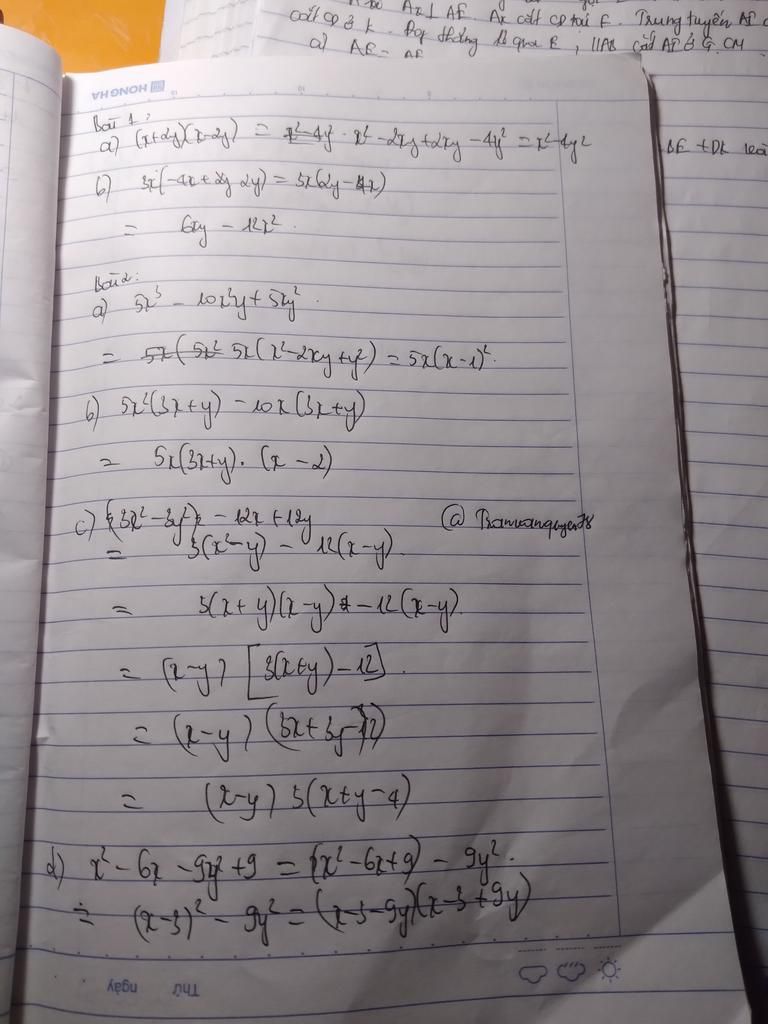 Az ⊥ AE. Ax cắt CD tại F. Trung tuyến AI
cắt CD ở k. Đg thẳng qua E, //AB cắt AI ở G. CM
a) AE = AF
BE + DK
HONG HA
Bài 1:
a) (x+2y)(x-2y) = x²-4y² · x² - 2xy + 2xy - 4y² = x²-4y²
b) 3x(-4x + 2y 2y) = 3x(2y - 4x)
= 6xy - 12x².
Bài 2:
a) 5x³ - 10x²y + 5xy².
= 5x(5x² 5x(x²-2xy+y²) = 5x(x-1)².
b) 5x²(3x+y) - 10x(3x+y)
= 5x(3x+y). (x - 2)
c) (3x² - 3y²) - 12x + 12y @Tranvanquyen78
= 3(x²-y) - 12(x-y).
= 3(x+y)(x-y) - 12(x-y).
= (x-y) [3(x+y) - 12].
= (x-y) (3x+3y-12)
= (x-y) 3(x+y-4)
d) x² - 6x - 9y² + 9 = (x²-6x+9) - 9y².
= (x-3)² - 9y² = (x-3-9y)(x-3+9y)
Thứ ngày